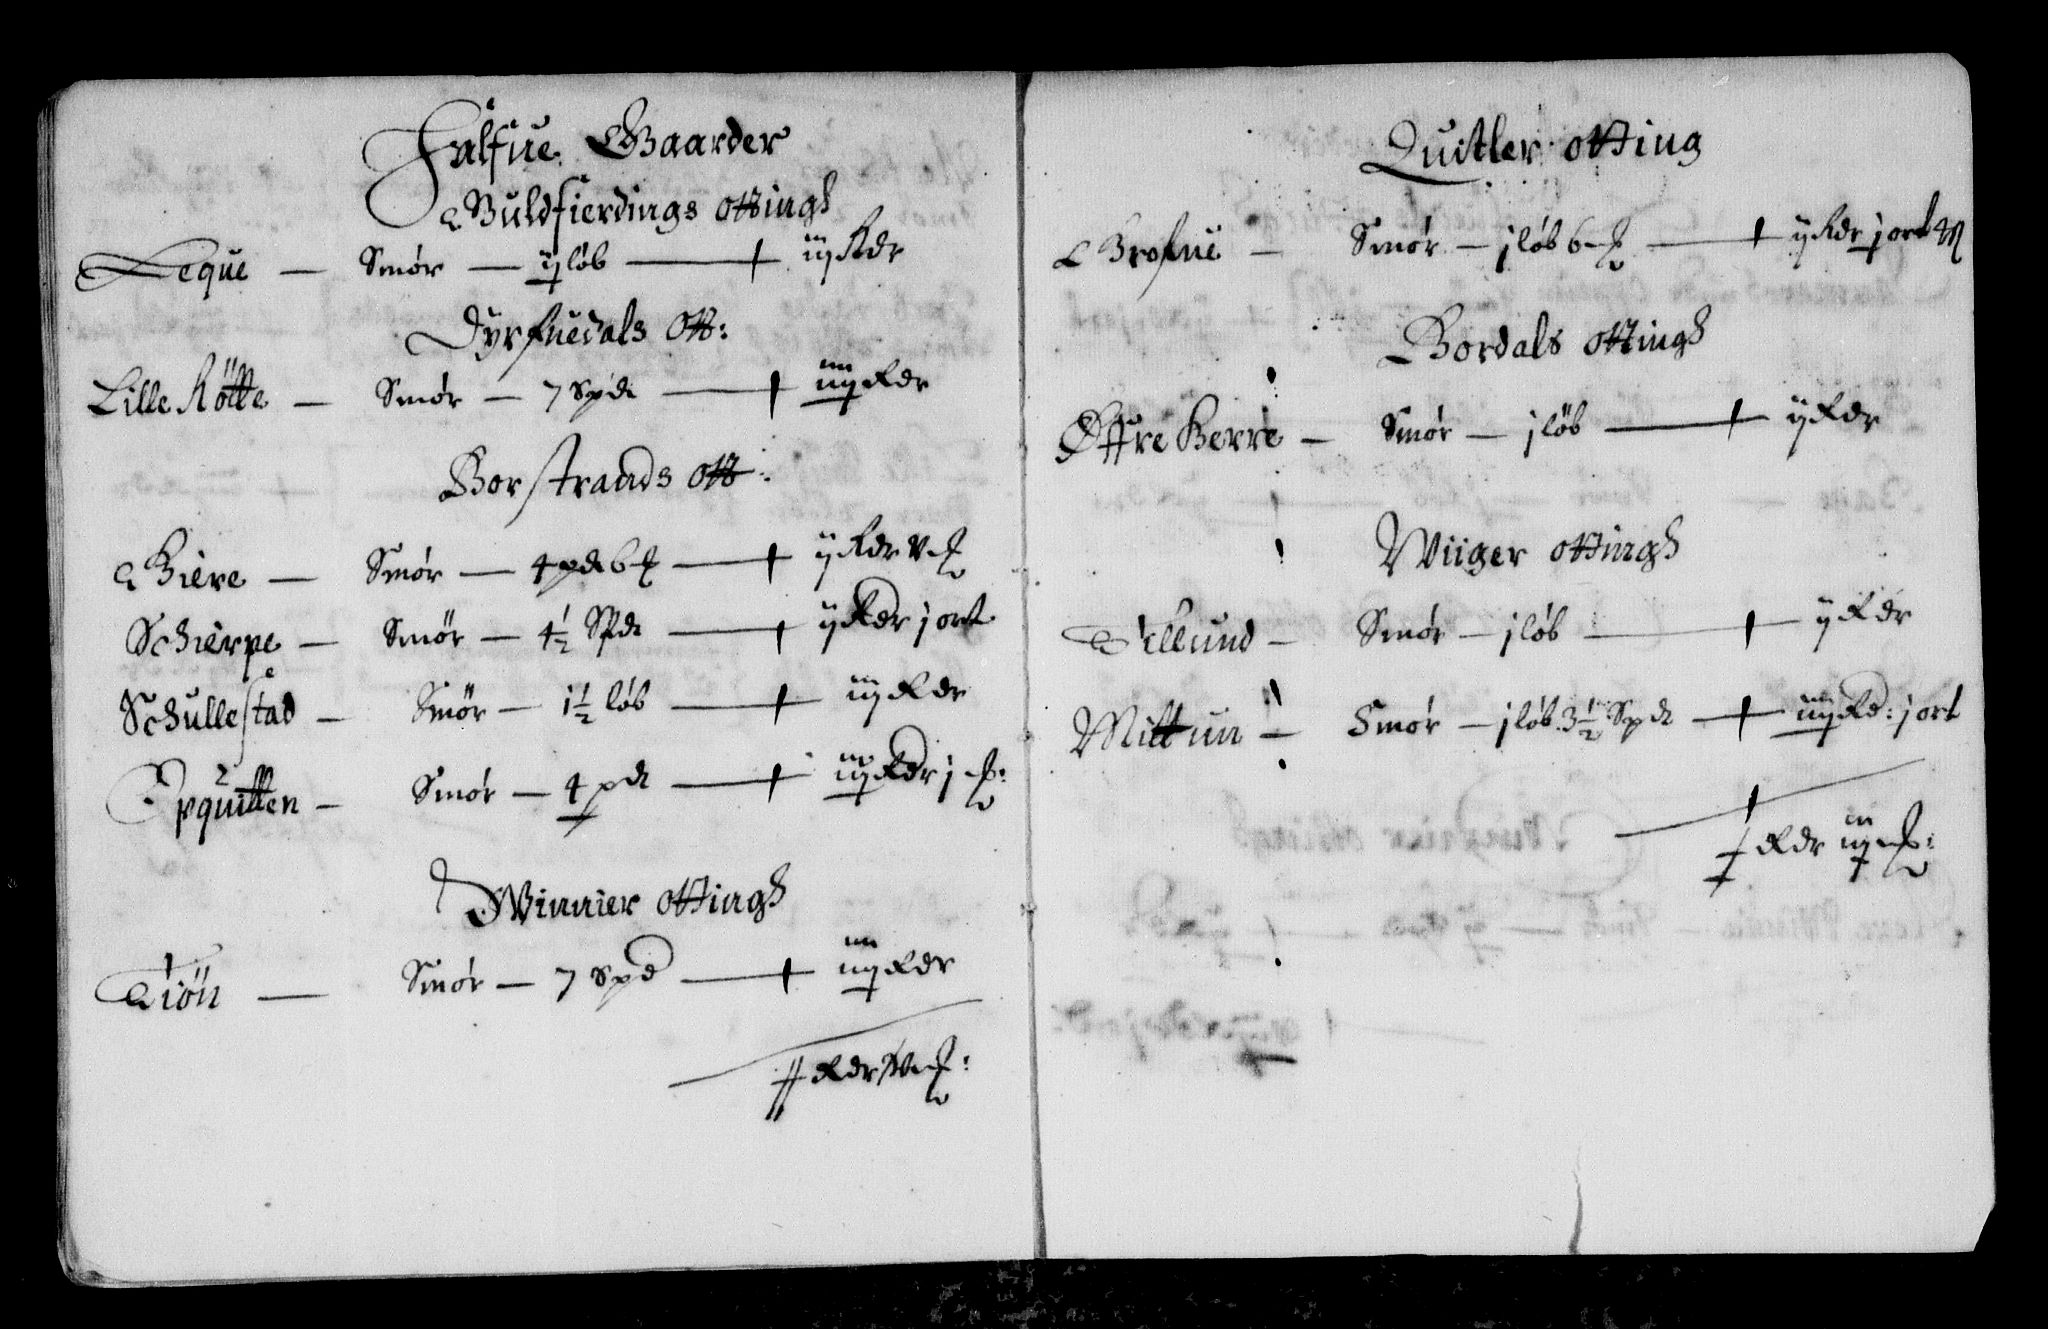 Halfue Gaarder
Guldfierdings ottingh
Leque — Smør — ij løb — iij Rdr
Dyrfuedals Ott:
Lille Røtte — Smør — 7 Spde — iiij Rdr
Borstrands Ott:
Giere — Smør — 4 pd 6 — ij Rdr
Schierpe — Smør — 4½ Spde — ij Rdr j ort
Schullestad — Smør — 1½ løb — iij Rdr
Smør — 4 pd — iiij Rdr j
Winnier ottingh
Tiøn — Smør — 7 Spd — iiij Rdr
Rdr
Quitler otting
Grofue — Smør — j løb 6 — ij Rdr j ort
Bordals ottingh
Øffre Kerre — Smør — j løb — ij Rdr
Wiiger ottingh
Tillund — Smør — j løb — ij Rdr
Mittun — Smør — j løb 3½ Spde — iiij Rd: j ort
Rdr